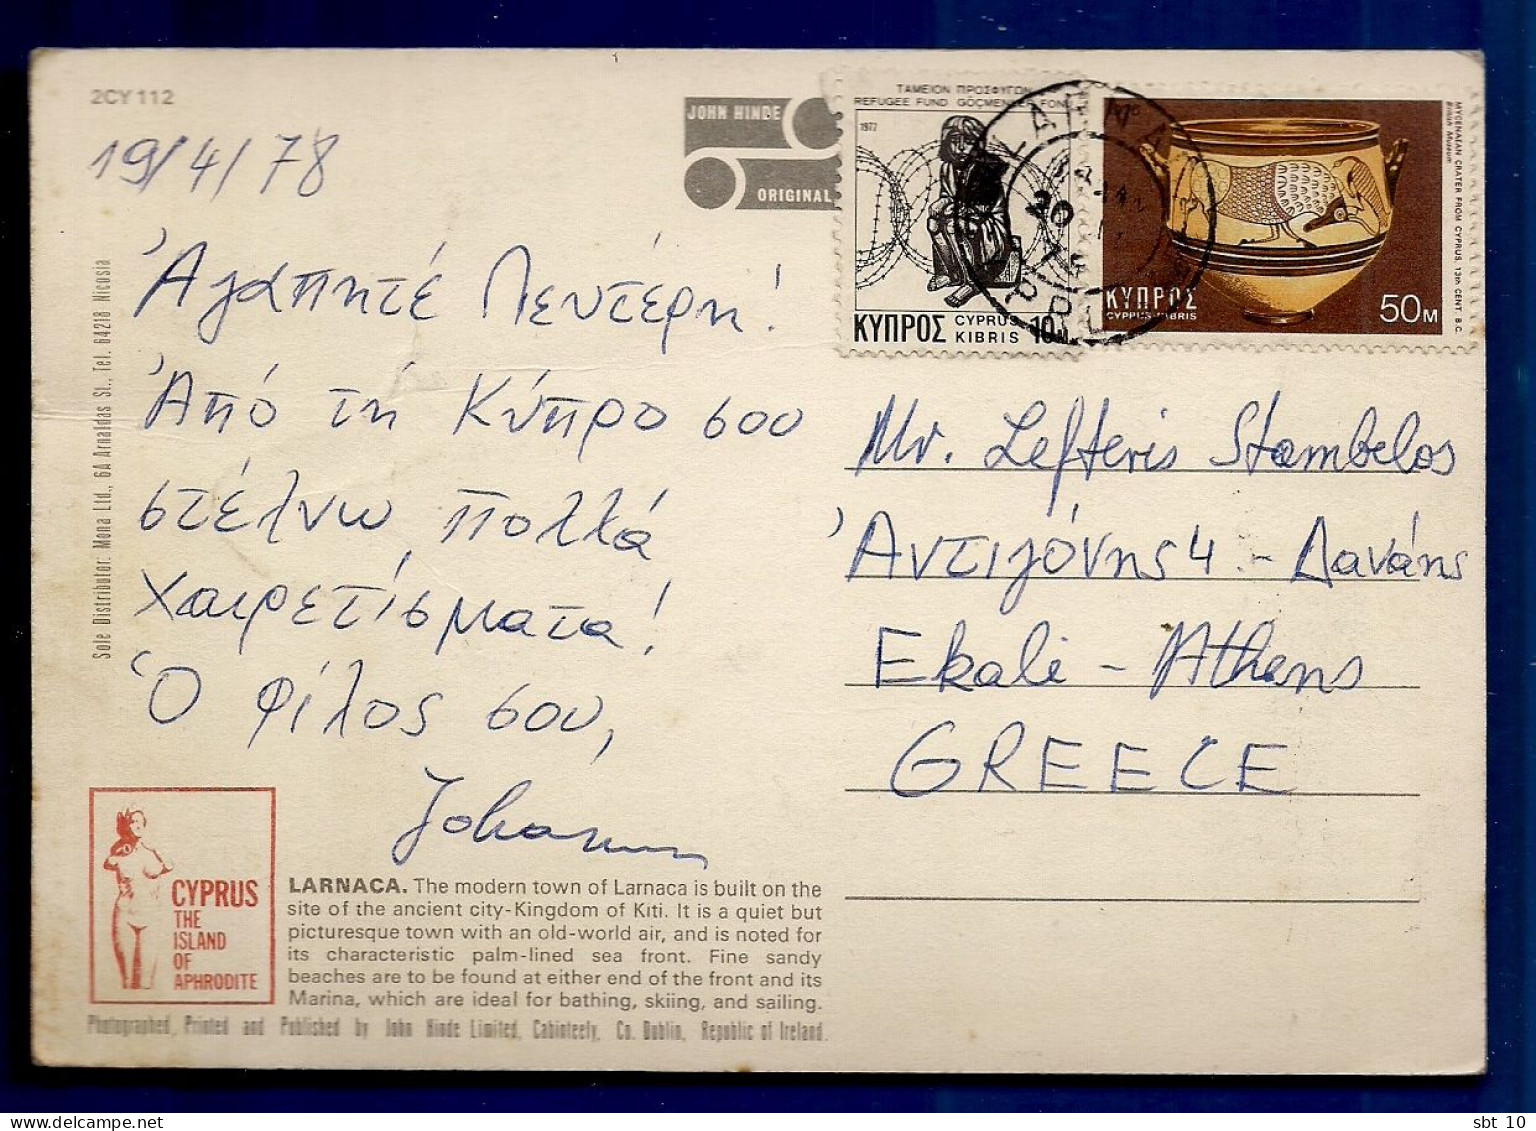 2CY 112
19/4/78
Ἀγαπητέ Λευτέρη!
Ἀπό τή Κύπρο σου
στέλνω πολλά
χαιρετίσματα!
Ὁ φίλος σου,
Johann
JOHN HINDE
ORIGINAL
Sole Distributor: Mona Ltd., 6A Arnaldas St., Tel. 64218 Nicosia
CYPRUS
THE
ISLAND
OF
APHRODITE
LARNACA. The modern town of Larnaca is built on the
site of the ancient city-Kingdom of Kiti. It is a quiet but
picturesque town with an old-world air, and is noted for
its characteristic palm-lined sea front. Fine sandy
beaches are to be found at either end of the front and its
Marina, which are ideal for bathing, skiing, and sailing.
Photographed, Printed and Published by John Hinde Limited, Cabinteely, Co. Dublin, Republic of Ireland.
ΤΑΜΕΙΟΝ ΠΡΟΣΦΥΓΩΝ
REFUGEE FUND GÖÇMENLER FONU
1977
ΚΥΠΡΟΣ CYPRUS KIBRIS 10M
LARNACA
20
78
MYCENAEAN CRATER FROM CYPRUS, 13th CENT. B.C.
British Museum
ΚΥΠΡΟΣ
CYPRUS-KIBRIS
50M
Mr. Lefteris Stambelos
Ἀντιγόνης 4 - Δανάης
Ekali - Athens
GREECE
sbt_10